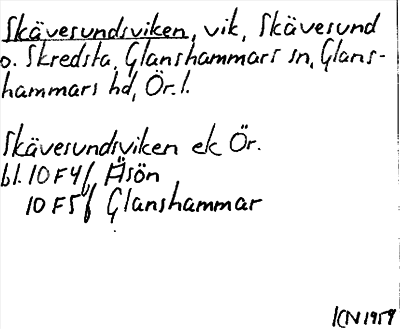 Skävesundsviken, vik, Skävesund
o. Skredsta, Glanshammars sn, Glans-
hammars hd, Ör. l.
Skävesundsviken ek Ör.
bl. 10F4f Äsön
10F5f Glanshammar
KN 1959